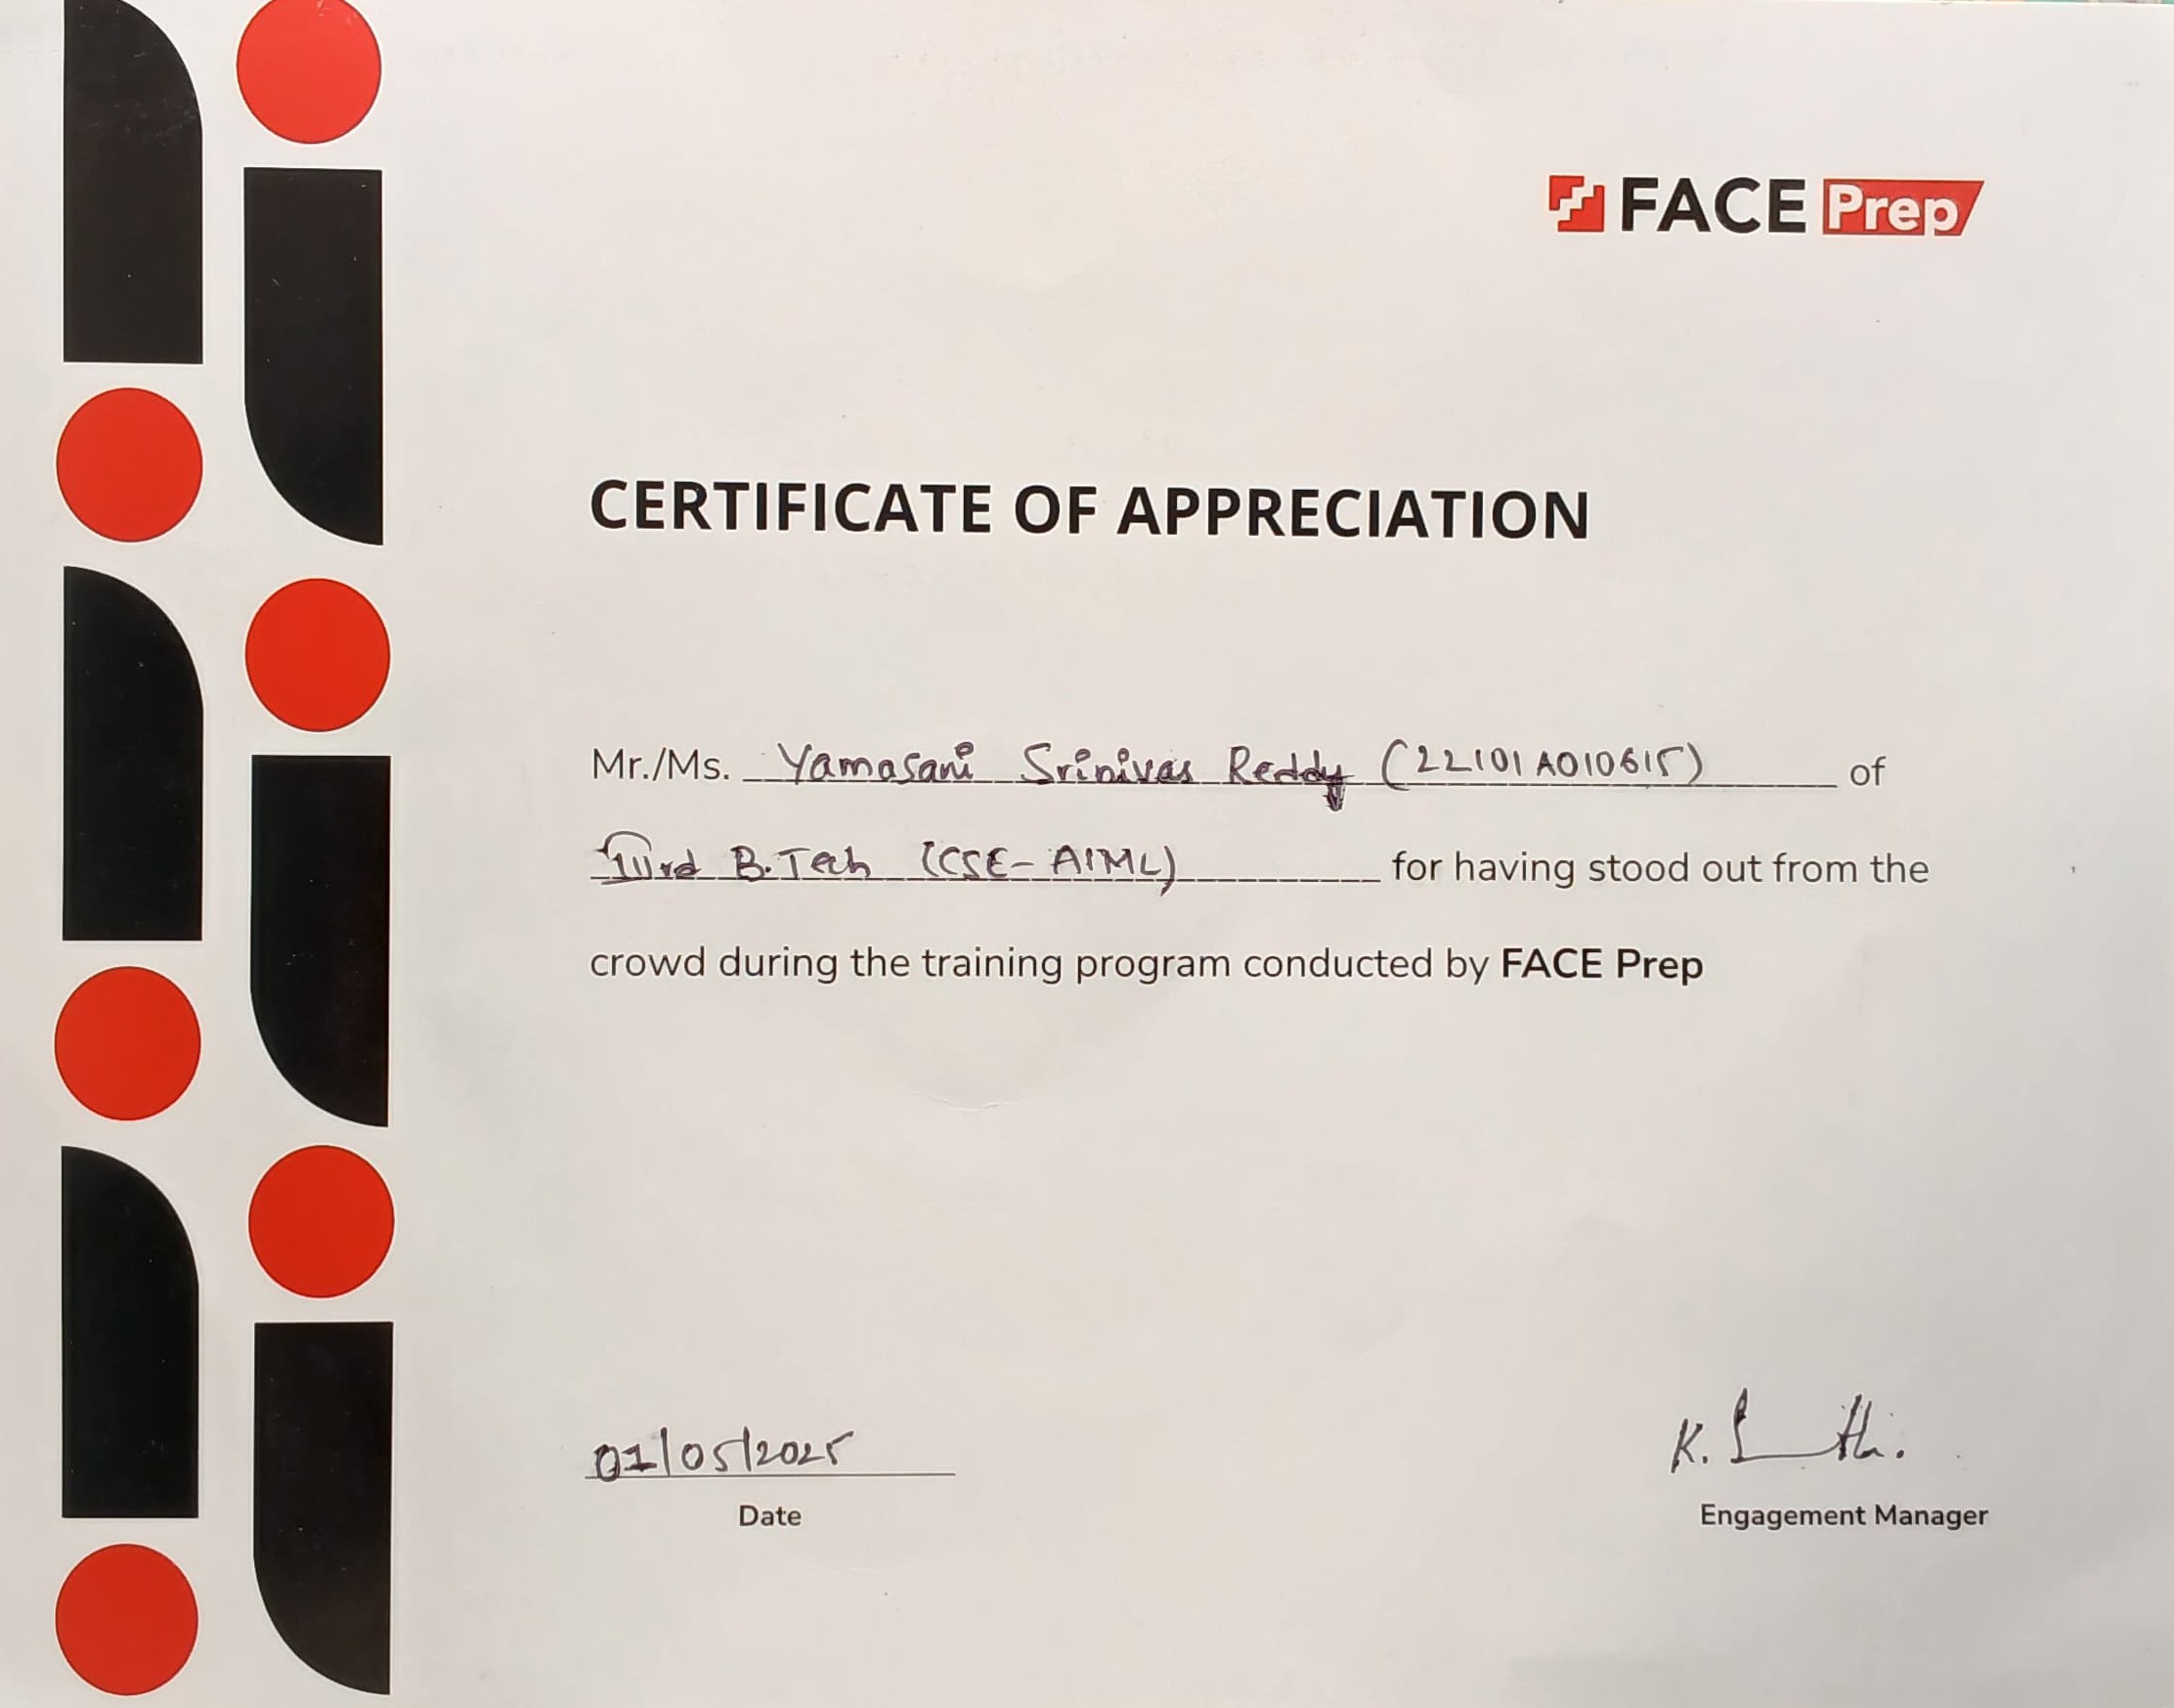 FACE Prep
CERTIFICATE OF APPRECIATION
Mr./Ms. Yamasani Srinivas Reddy (22101A010615) of
IIIrd B.Tech (CSE-AIML) for having stood out from the
crowd during the training program conducted by FACE Prep
01/05/2025
Date
K.
Engagement Manager